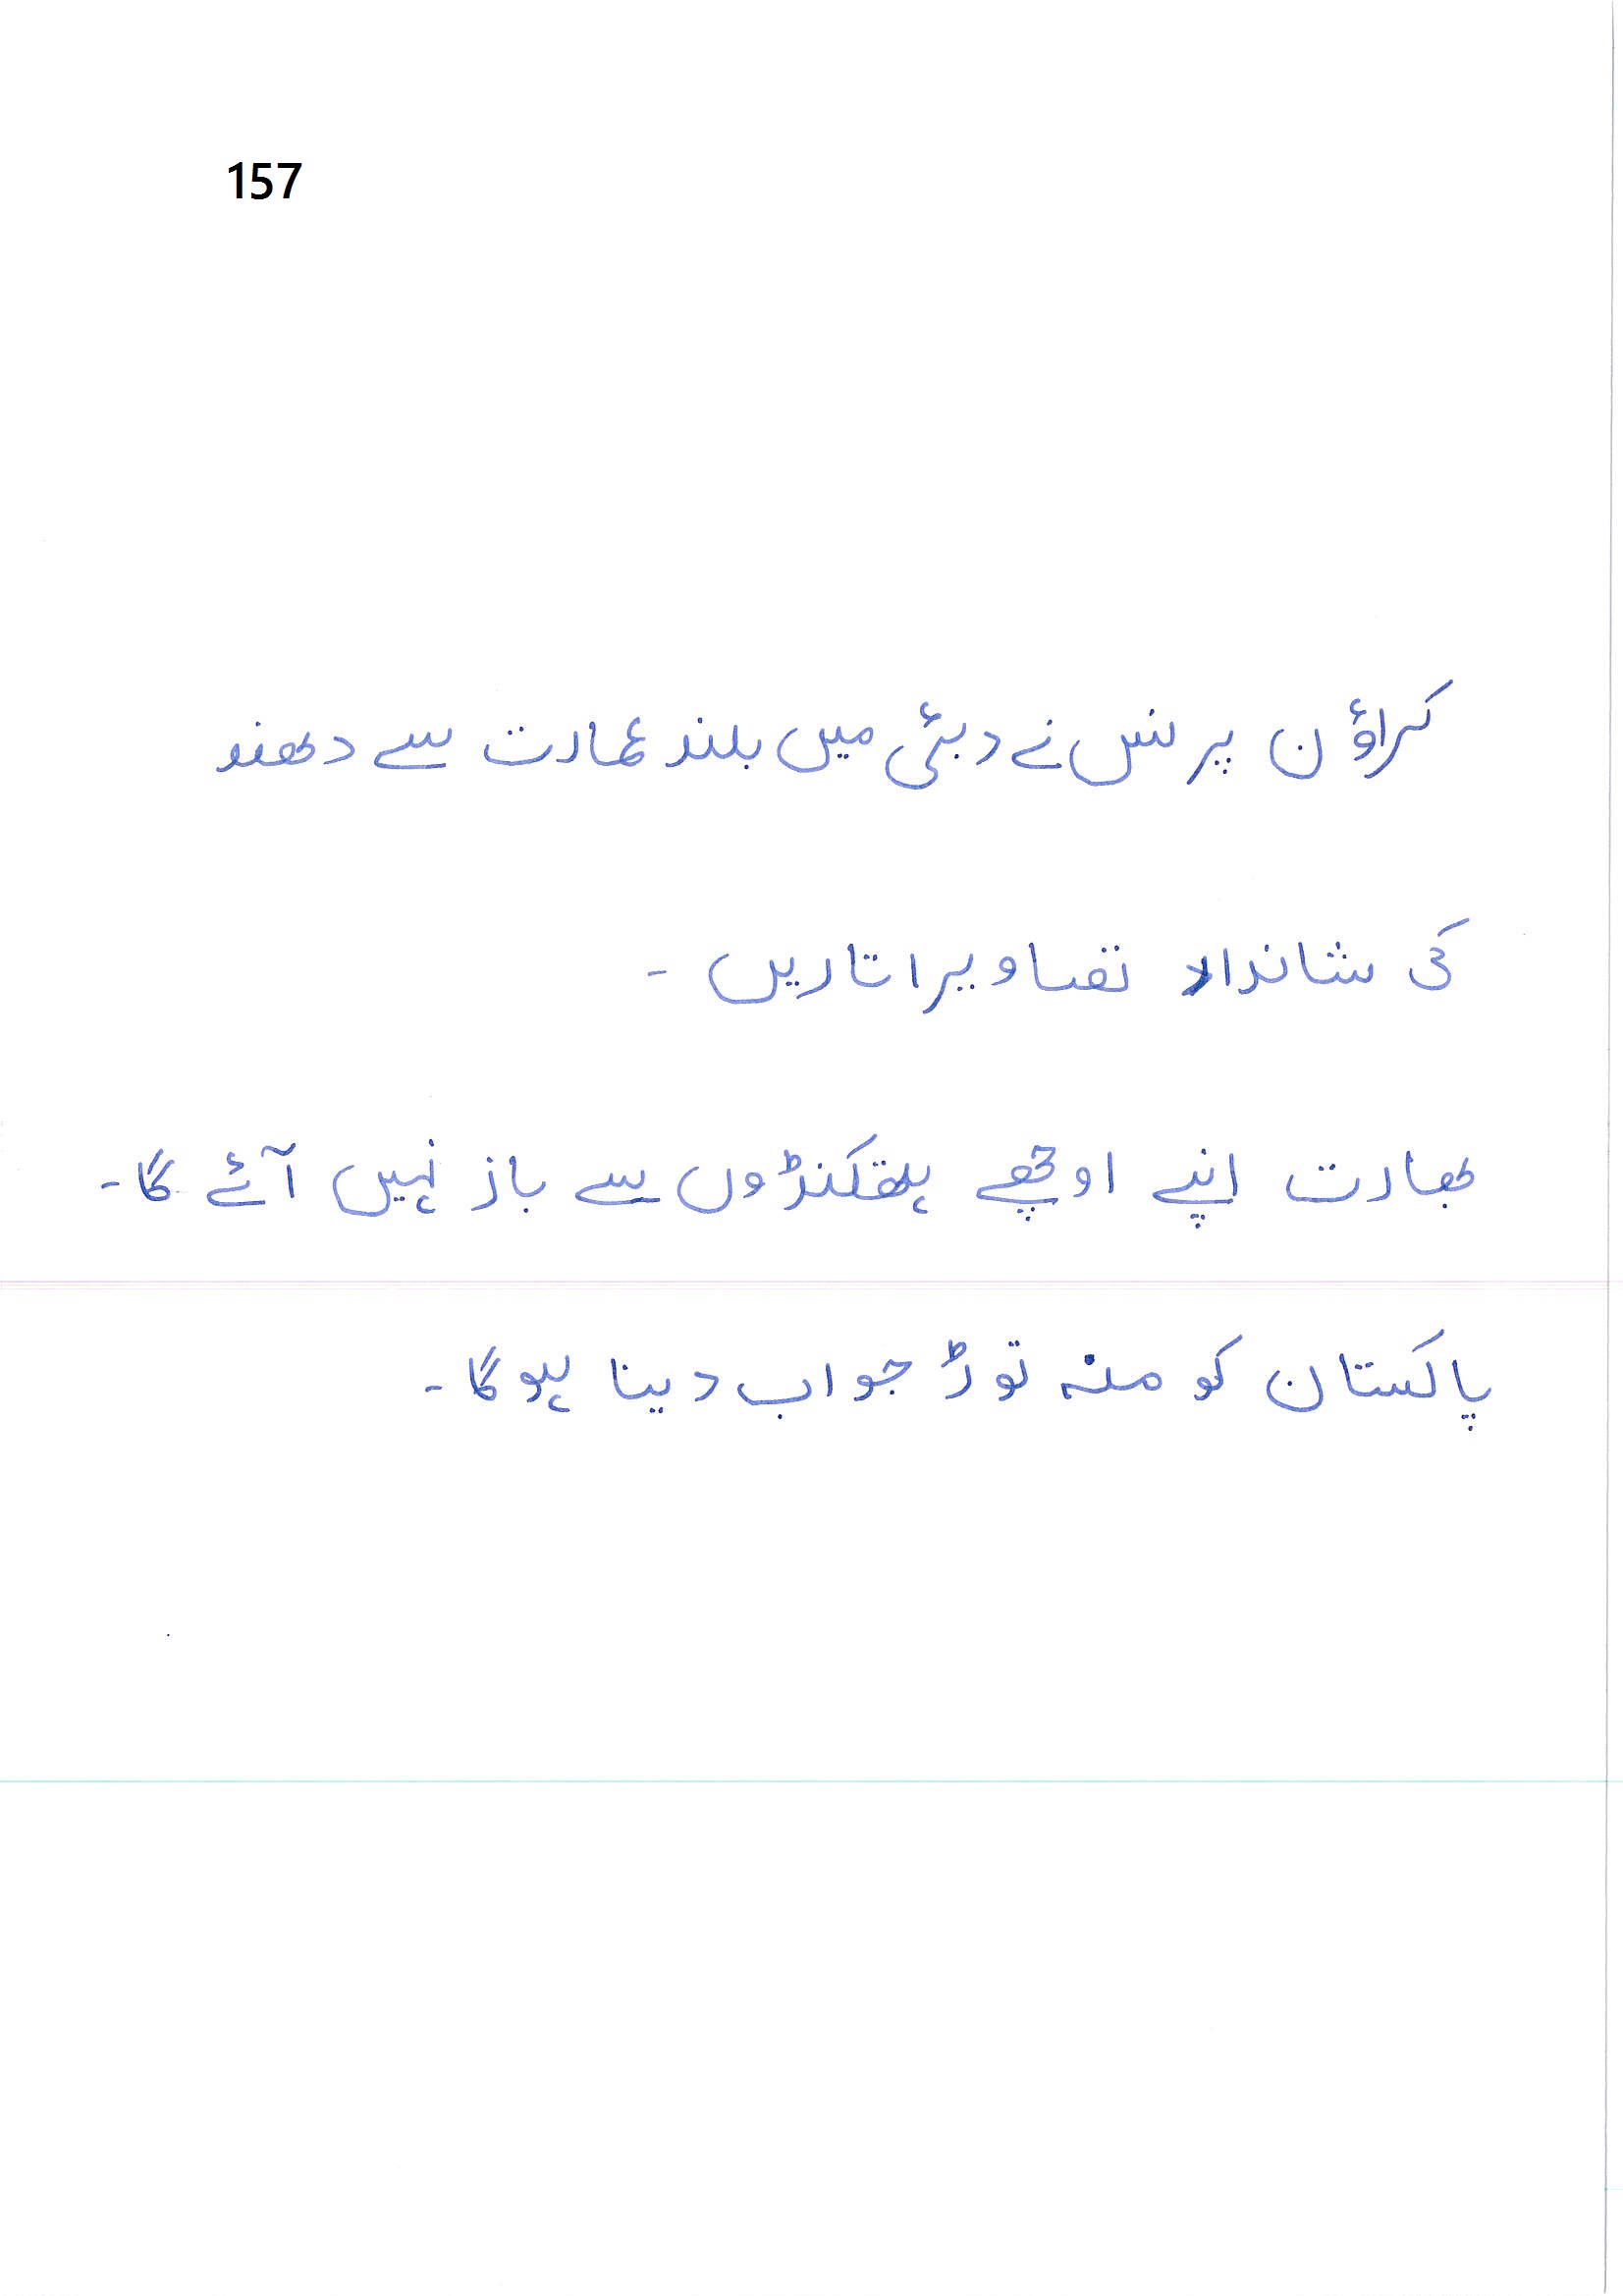 157
کراؤن پرنس نے دبئی میں بلند عمارت سے دھند
کی شاندار تصاویر اتاریں ۔
بھارت اپنے اوچھے ہتھکنڈوں سے باز نہیں آئے گا۔
پاکستان کو منہ توڑ جواب دینا ہوگا۔